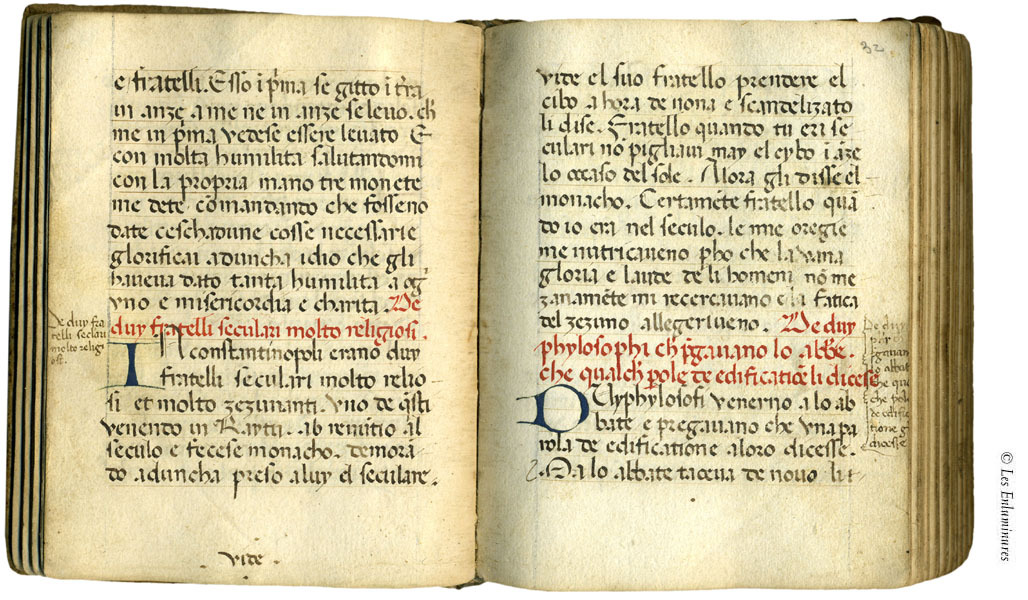 e fratelli. Esso i p̄ma se gitto i t̄ra
in anze a me ne in anze se leuo. ch̄
me in p̄ma vedese essere leuato E
con molta humilita salutandomi
con la propria mano tre monete
me dete comandando che fosseno
date ceschadune cosse necessarie
glorificai aduncha idio che gli
haueua dato tanta humilita a og
vno e misericordia e charita. De
duy fratelli seculari molto religiosi.
De duy fra
telli seclari
molto religi
osi.
IN constantinopoli erano duy
fratelli seculari molto relio
si et molto zezunanti. vno de q̄sti
venendo in Raytu. ab renūtio al
seculo e fecese monacho. demorā
do aduncha preso aluy el seculare.
vite
32
vite el suo fratello prendere el
cibo a hora de nona e scandelizato
li dise. Fratello quando tu eri se
culari nō pigliaui may el cybo i āze
lo occaso del sole. Alora gli disse el
monacho. Certamēte fratello quā
do io era nel seculo. le mie oregie
me nutricaueno pho che la vana
gloria e laude de li homeni nō me
zanamēte mi recercauano e la fatica
del zezuno allegeriueno. De duy
phylosophi ch̄ p̄gauano lo abbe.
che qualch̄ parole de edificatiōe li dicese
De duy
phy
gauan
lo abbat
che qua
che pole
de edifica
tione gli
dicesse
DOlyphylosofi venerno a lo ab
bate e pregauano che vna pa
rola de edificatione aloro dicesse.
Ma lo abbate taceua de nouo li
© Les Enluminures